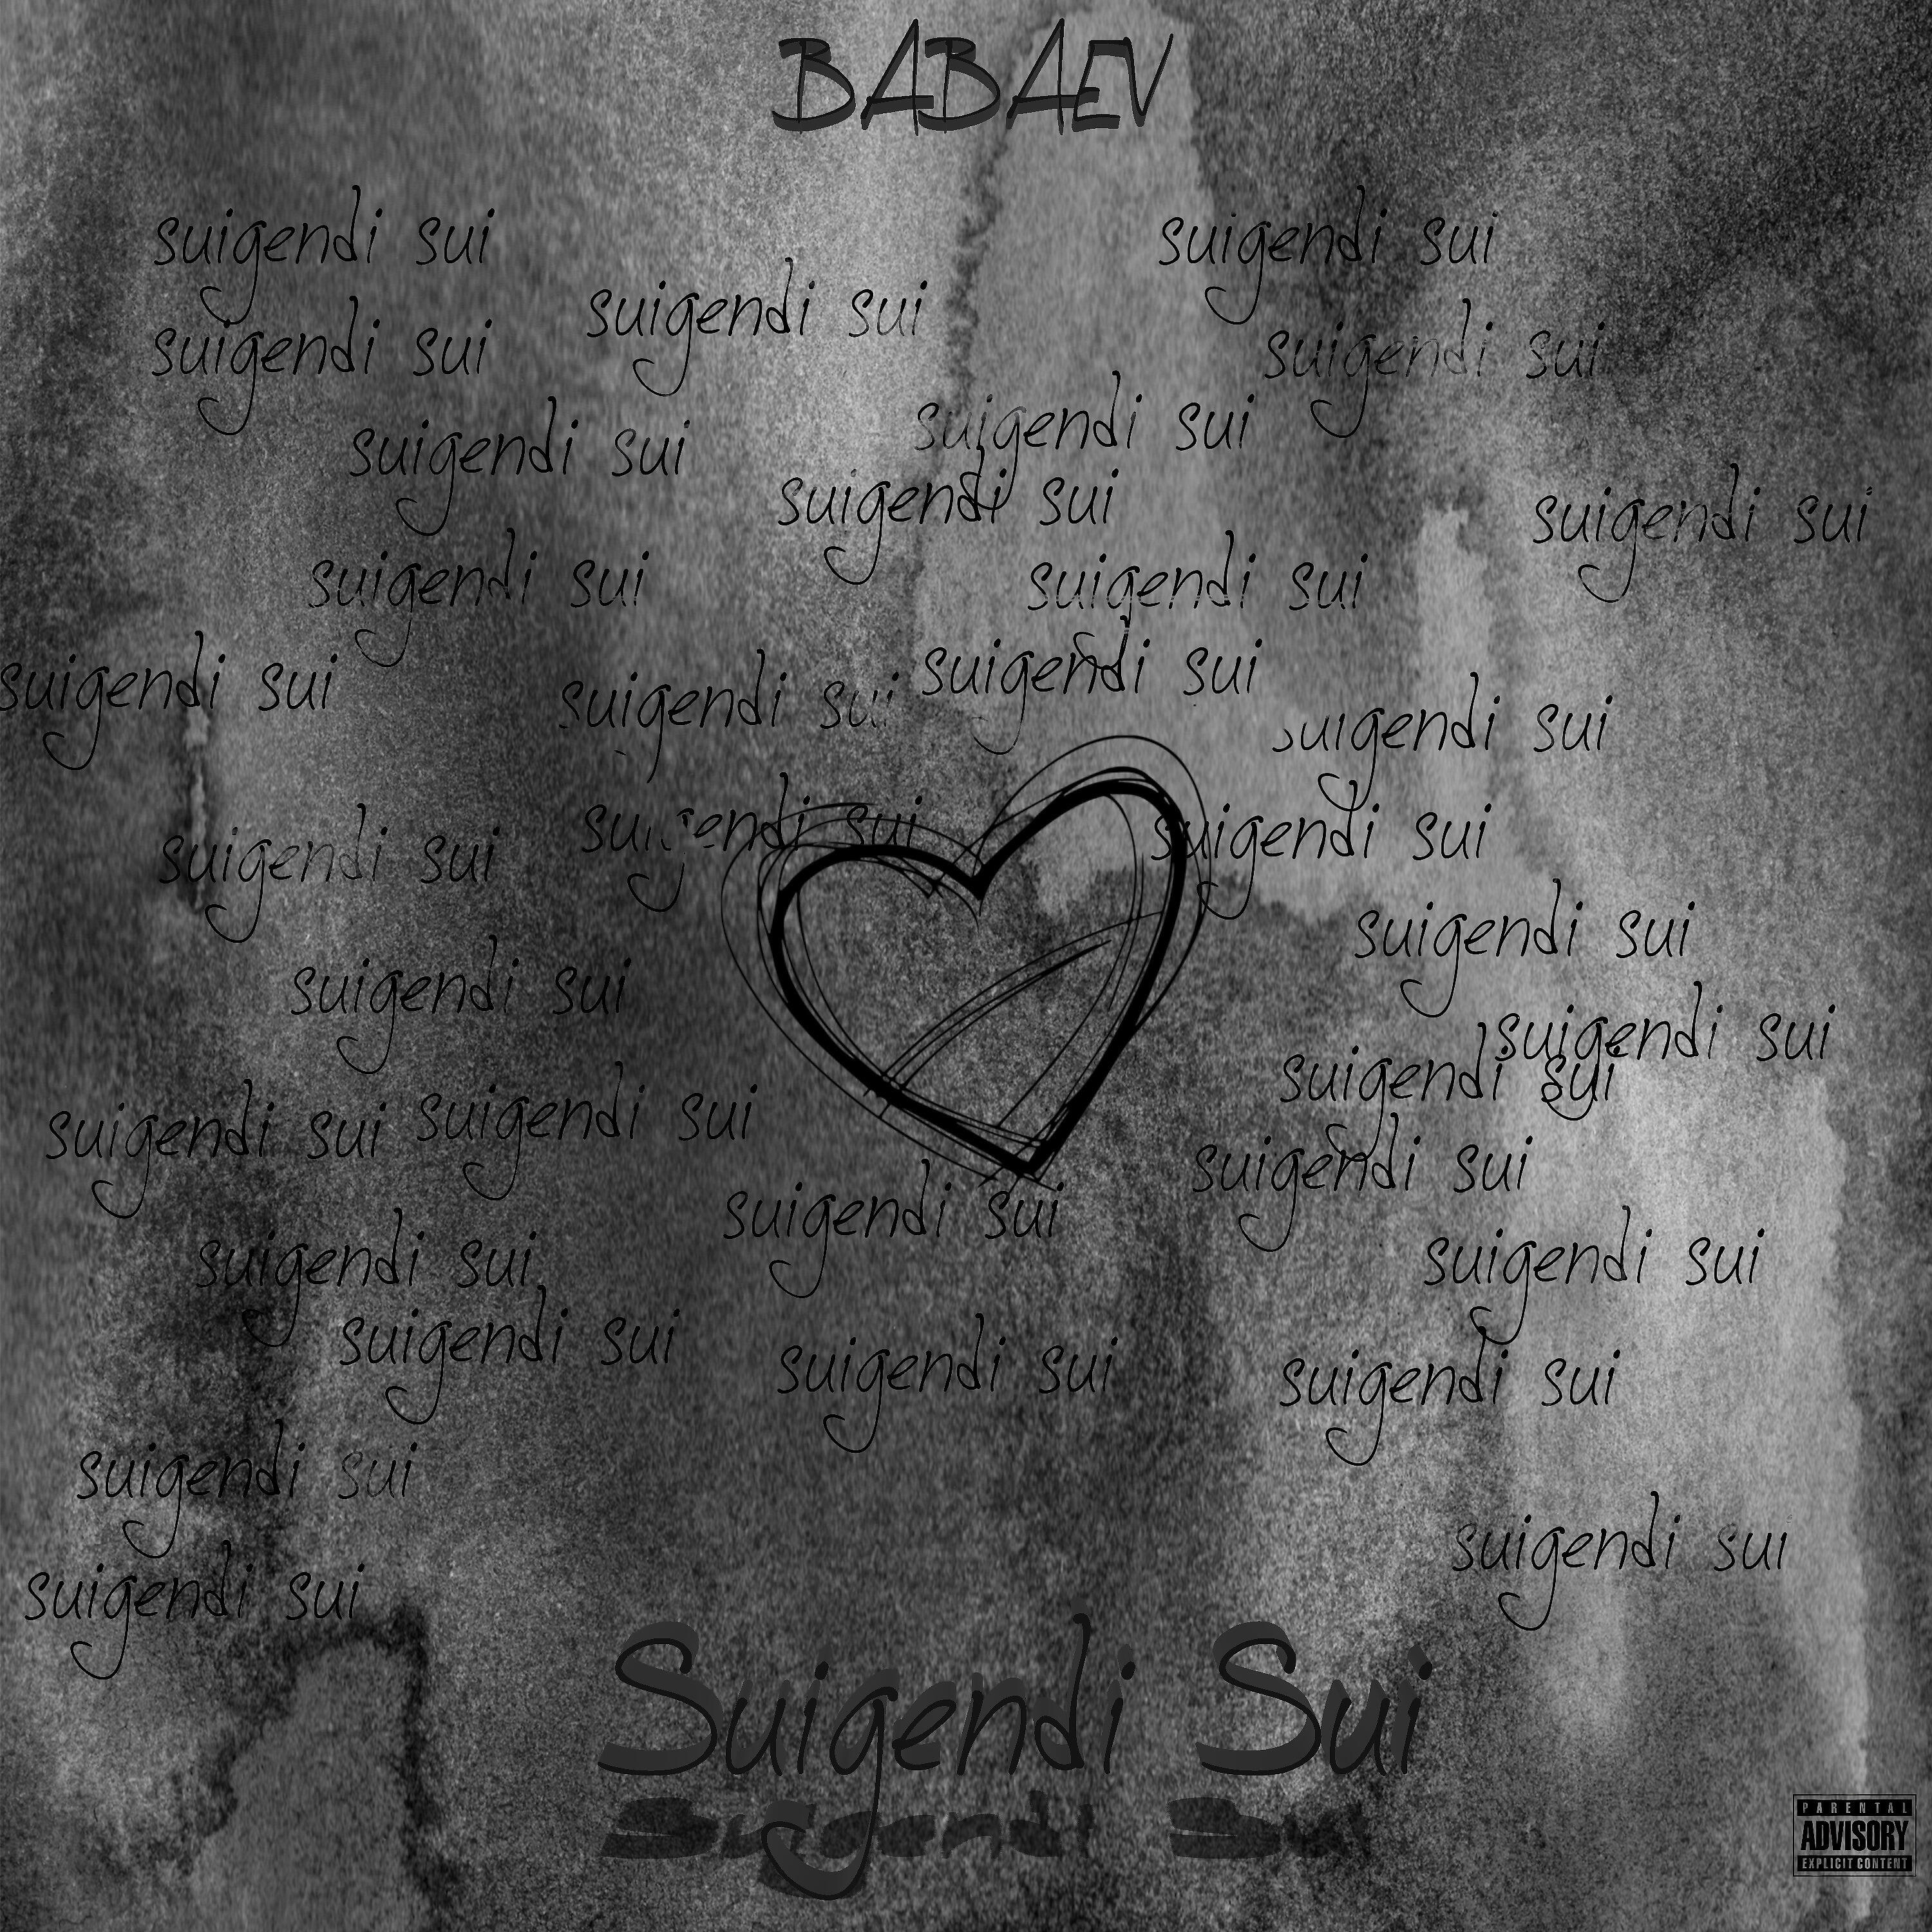 BABAEV
suigendi sui
suigendi sui
suigendi sui
suigendi sui
suigendi sui
suigendi sui
suigendi sui
suigendi sui
suigendi sui
suigendi sui
suigendi sui
suigendi sui
suigendi sui
suigendi sui
suigendi sui
suigendi sui
suigendi sui
suigendi sui
suigendi sui
suigendi sui
suigendi sui
suigendi sui
suigendi sui
suigendi sui
suigendi sui
suigendi sui
suigendi sui
suigendi sui
suigendi sui
suigendi sui
suigendi sui
suigendi sui
suigendi sui
suigendi sui
Suigendi Sui
PARENTAL
ADVISORY
EXPLICIT CONTENT